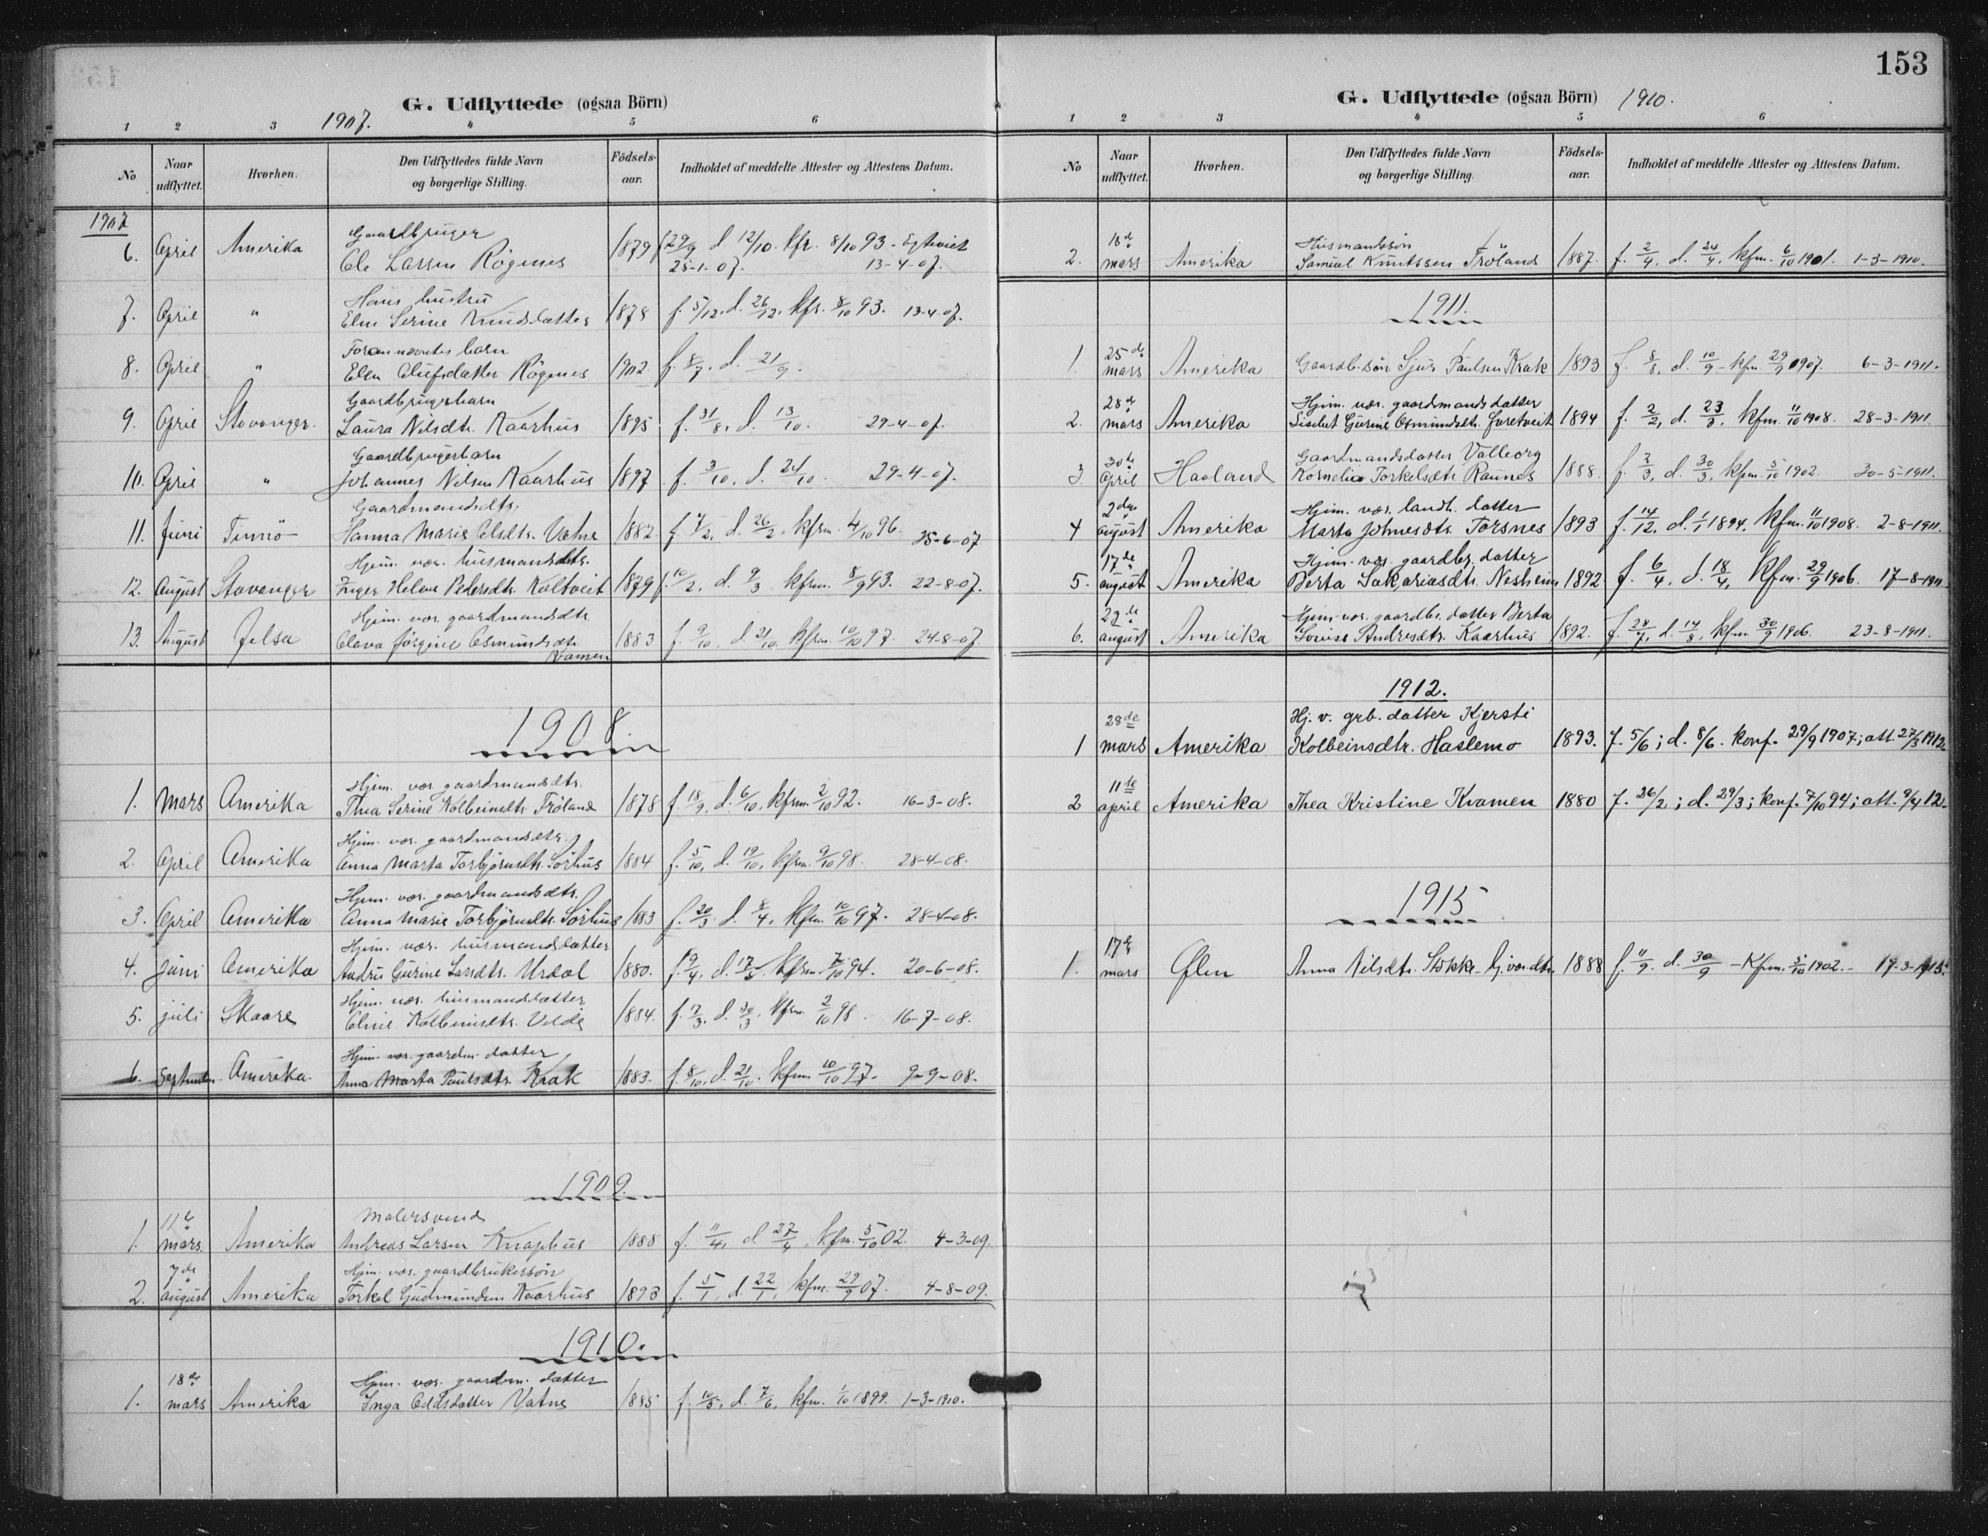 G. Udflyttede (ogsaa Börn)
1907.
1 2 3 4 5 6
No
Naar udflyttet.
Hvorhen.
Den Udflyttedes fulde Navn og borgerlige Stilling.
Födsels- aar.
Indholdet af meddelte Attester og Attestens Datum.
1907
Gaardbruger
6. April Amerika Ole Larsen Rögenes 1879 f 29/9 d. 12/10. kfr. 8/10 93.
25-1-07. 13-4-07.
Hans hustru
7. April " Elen Serine Knudsdatter 1878 f. 5/12. d. 26/12. kfr. 8/10 93. 13-4-07.
Forannævntes barn
8. April " Elen Olufsdatter Rögenes 1902 f. 8/9. d. 21/9.
Gaardbrugerbarn
9. April Stavanger. Laura Nilsdtr. Kaarhus 1895 f. 31/8. d. 13/10. 29-4-07.
Gaardbrugerbarn
10. April " Johannes Nilsen Kaarhus 1897 f. 3/10. d. 24/10. 29-4-07.
Gaardmandsdtr.
11. Juni Hanna Marie Olsdtr. Vatne 1882. f. 7/2. d. 26/2. kfrm. 4/10 96. 25-6-07
Hjem. vær. husmandsdtr.
12. August Stavanger Inger Helene Pedersdtr. Koltveit 1879 f. 10/2. d. 9/3 kfrm. 8/9 93. 22-8-07.
Hjem. vær. gaardmandsdtr.
13. August Jelsa Olava Jörgine Osmundsdtr. 1883 f. 9/10. d. 21/10. kfrm. 10/10 97. 24-8-07
Kvamen
1908
Hjem. vær. gaardmandsdtr.
1. Mars Amerika Thea Serine Kolbeinsdtr. Fröland 1878 f. 18/9. d. 6/10. kfrm. 2/10 92. 16-3-08.
Hjem. vær. gaardmandsdtr.
2. April Amerika Anna Marta Torbjörnsdtr. Sörhus 1884 f. 5/10. d. 19/10. kfrm. 9/10 98. 28-4-08.
Hjem. vær. gaardmandsdtr.
3. April Amerika Anna Marie Torbjörnsdtr. Sörhus 1883 f. 20/3 d. 8/4. kfm. 10/10 97. 28-4-08.
Hjem. vær. husmandsdatter
4. Juni Amerika Gurine Larsdtr. Urdal 1880. f. 19/4. d. 17/5. kfrm. 7/10 94. 20-6-08.
Hjem. vær. husmandsdatter
5. juli Skaare Oline Kolbeinsdtr. Velde 1884. f. 7/3. d. 30/3. kfrm. 2/10 98. 16-7-08.
Hjem. vær. gaardm. datter
6. September Amerika. Anna Marta Paulsdtr. Krak 1883. f. 8/10. d. 21/10. kfm. 10/10 97. 9-9-08.
1909.
Malersvend
1. 11te mars. Amerika Andreas Larsen Knaphus 1888 f. 11/4. d. 27/4. kfm. 5/10 02. 4-3-09.
Hjem. vær. gaardbrukersön
2. 7de august Amerika Torkel Gudmundsen Kaarhus 1893 f. 5/1. d. 22/1. kfm. 29/9 07. 4-8-09.
1910.
Hjem. vær. gaardm. datter
1. 18de mars Amerika Inga Oddsdatter Vatne 1885 f. 10/5. d. 7/6. kfm. 1/10 1899. 1-3-1910.
153
G. Udflyttede (ogsaa Börn) 1910.
1 2 3 4 5 6
No
Naar udflyttet.
Hvorhen.
Den Udflyttedes fulde Navn og borgerlige Stilling.
Födsels- aar.
Indholdet af meddelte Attester og Attestens Datum.
Husmandssön
2. 18de mars Amerika Samuel Knutssen Fröland 1887. f. 2/4. d. 24/4. kfm. 6/10 1901. 1-3-1910.
1911.
1. 25de mars Amerika Gaardb.sön Sjur Paulsen Krak 1893 f. 8/8. d. 10/9 - kfm. 29/9 1907. 6-3-1911.
Hjem. vær. gaardmandsdatter
2. 28de mars Amerika Gurine Osmundsdtr. 1894 f. 2/2. d. 23/3. kfm. 11/10 1908. 28-3-1911.
Gaardmandsdatter Valborg
3. 30te april Haaland Kornelia Torkelsdtr. Raunes 1888. f. 3/3. d. 30/3. kfm. 5/10 1902. 30-5-1911.
Hjem. vær. landb. datter
4 2den august Amerika Marta Johnesdtr. Torsnes 1893 f. 14/12. d. 1/1 1894. kfm. 11/10 1908. 2-8-1911.
Hjem. vær. gaardbr. datter
5. 17de august Amerika Berta Sakariasdtr. Nesheim 1892 f. 6/4. d. 18/4. kfm. 29/9 1906. 17-8-1911
Hjem. vær. gaardbr. datter Berta
6. 23de august Amerika Lovise Andresdtr. Kaarhus 1892. f. 28/7. d. 14/8. kfm. 30/9 1906. 23-8-1911.
1912.
Hj. v. grb. datter Kjersti
1 28de mars Amerika Kolbeinsdtr. Haslemo 1893. f. 5/6; d. 8/6. konf. 29/9 1907; att. 27/3 1912.
2 11te april Amerika Thea Kristine Kvamen 1880 f. 26/2; d. 29/3; konf. 7/10 94; att. 9/4 12.
1915
1. 17de mars Ølen Anna Nilsdtr. 1888 f. 11/9. d. 30/9 - Kfm. 5/10 1902. - 17-3-1915.